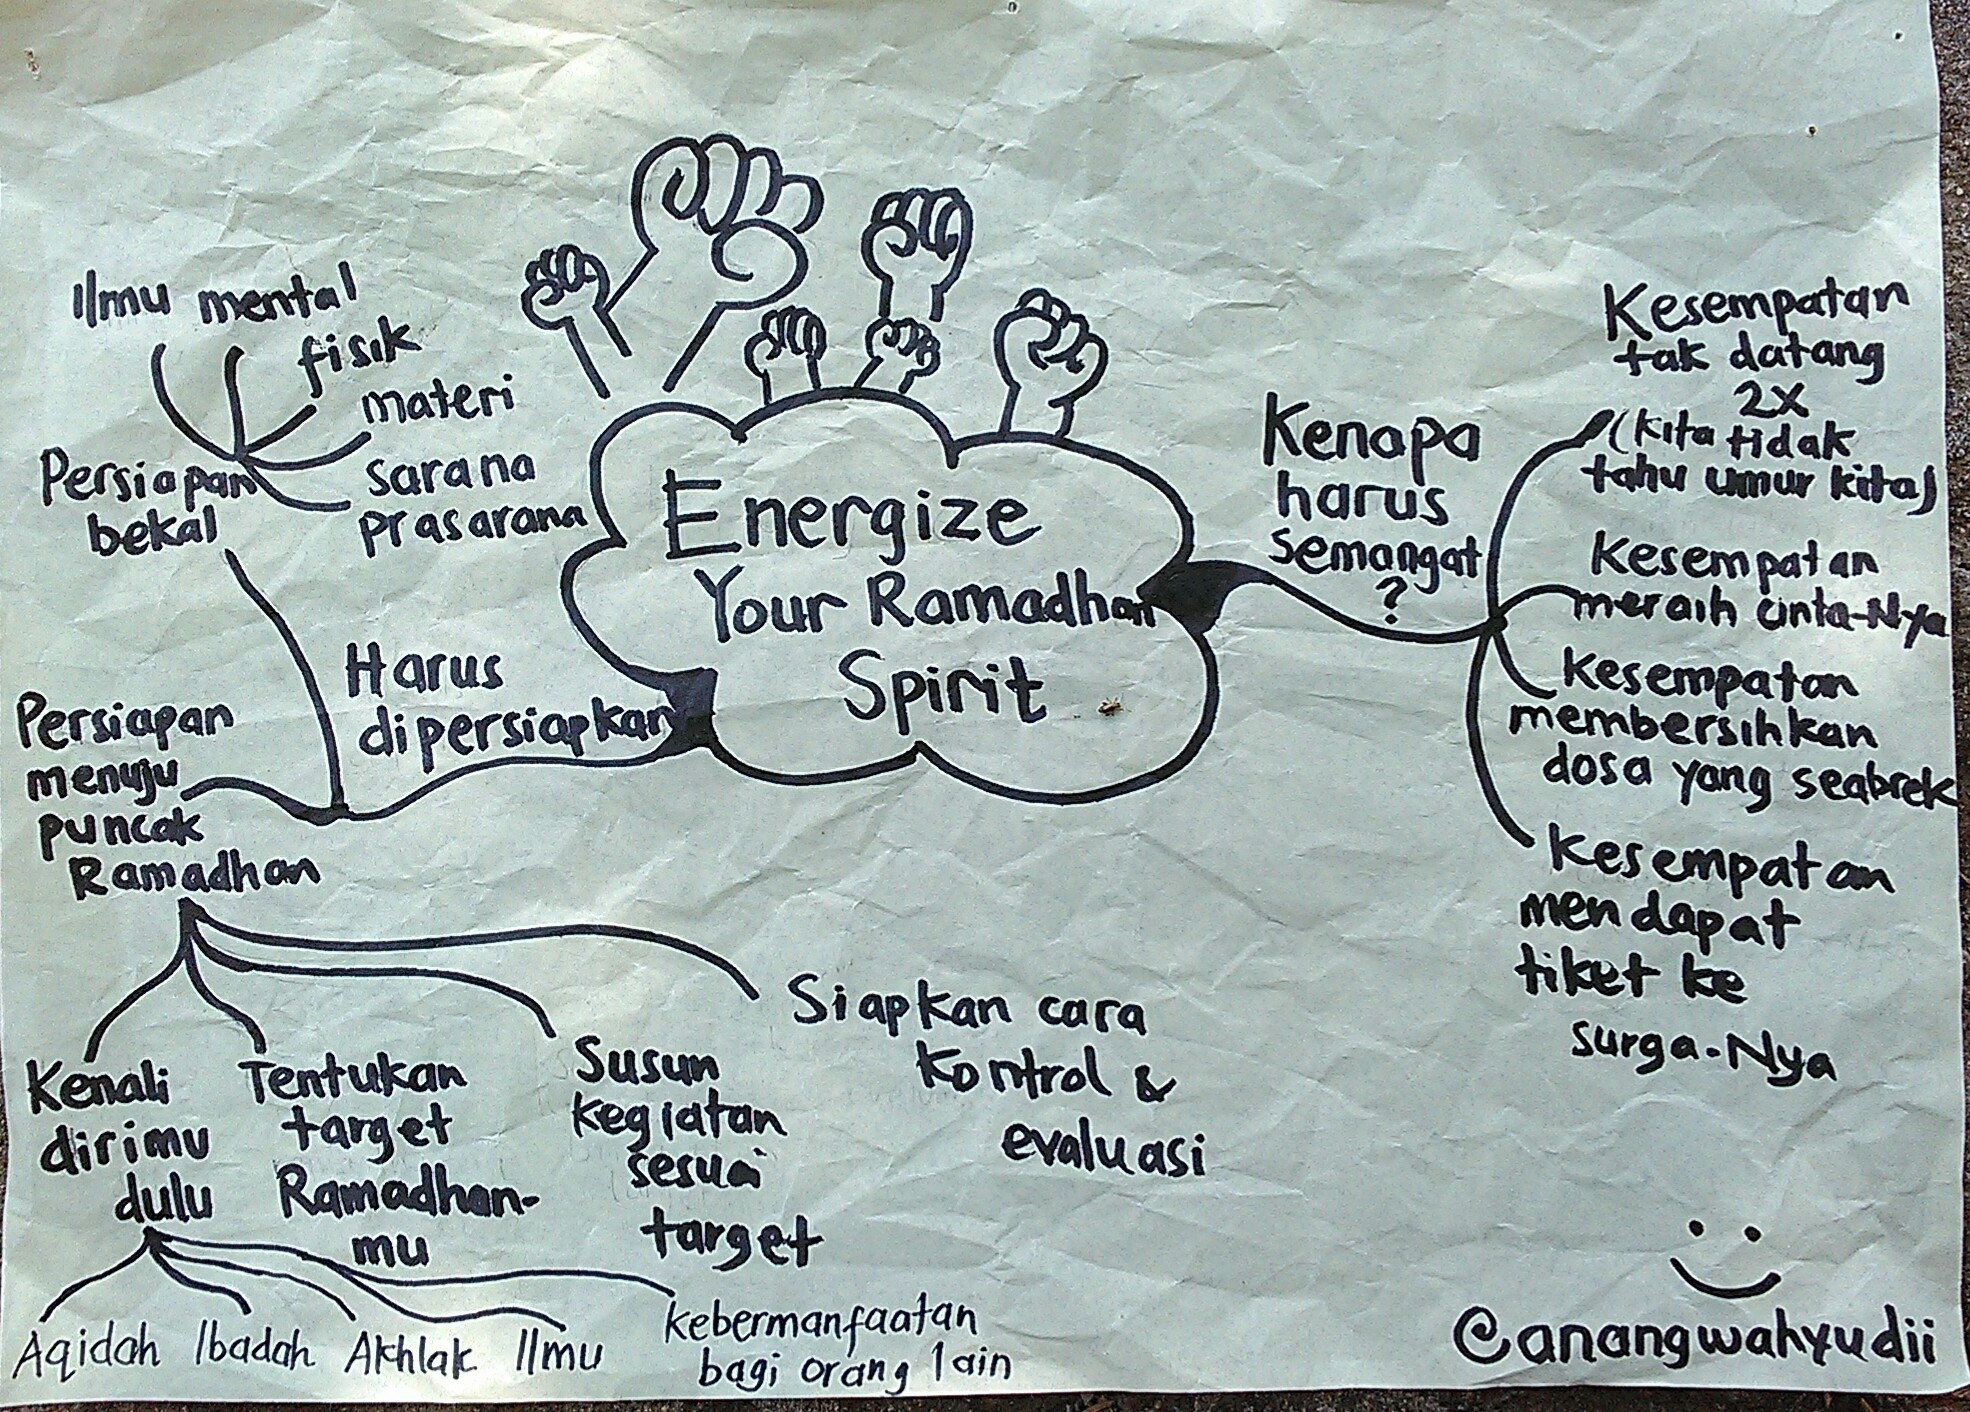 Energize
Your Ramadhan
Spirit
Kenapa
harus
semangat
?
Kesempatan
tak datang
2x
(kita tidak
tahu umur kita)
Kesempatan
meraih cinta-Nya
Kesempatan
membersihkan
dosa yang seabrek
Kesempatan
mendapat
tiket ke
surga-Nya
Harus
dipersiapkan
Persiapan
bekal
Ilmu
mental
fisik
materi
sarana
prasarana
Persiapan
menuju
puncak
Ramadhan
Kenali
dirimu
dulu
Aqidah
Ibadah
Akhlak
Ilmu
kebermanfaatan
bagi orang lain
Tentukan
target
Ramadhan-
mu
Susun
kegiatan
sesuai
target
Siapkan cara
kontrol &
evaluasi
@anangwahyudii